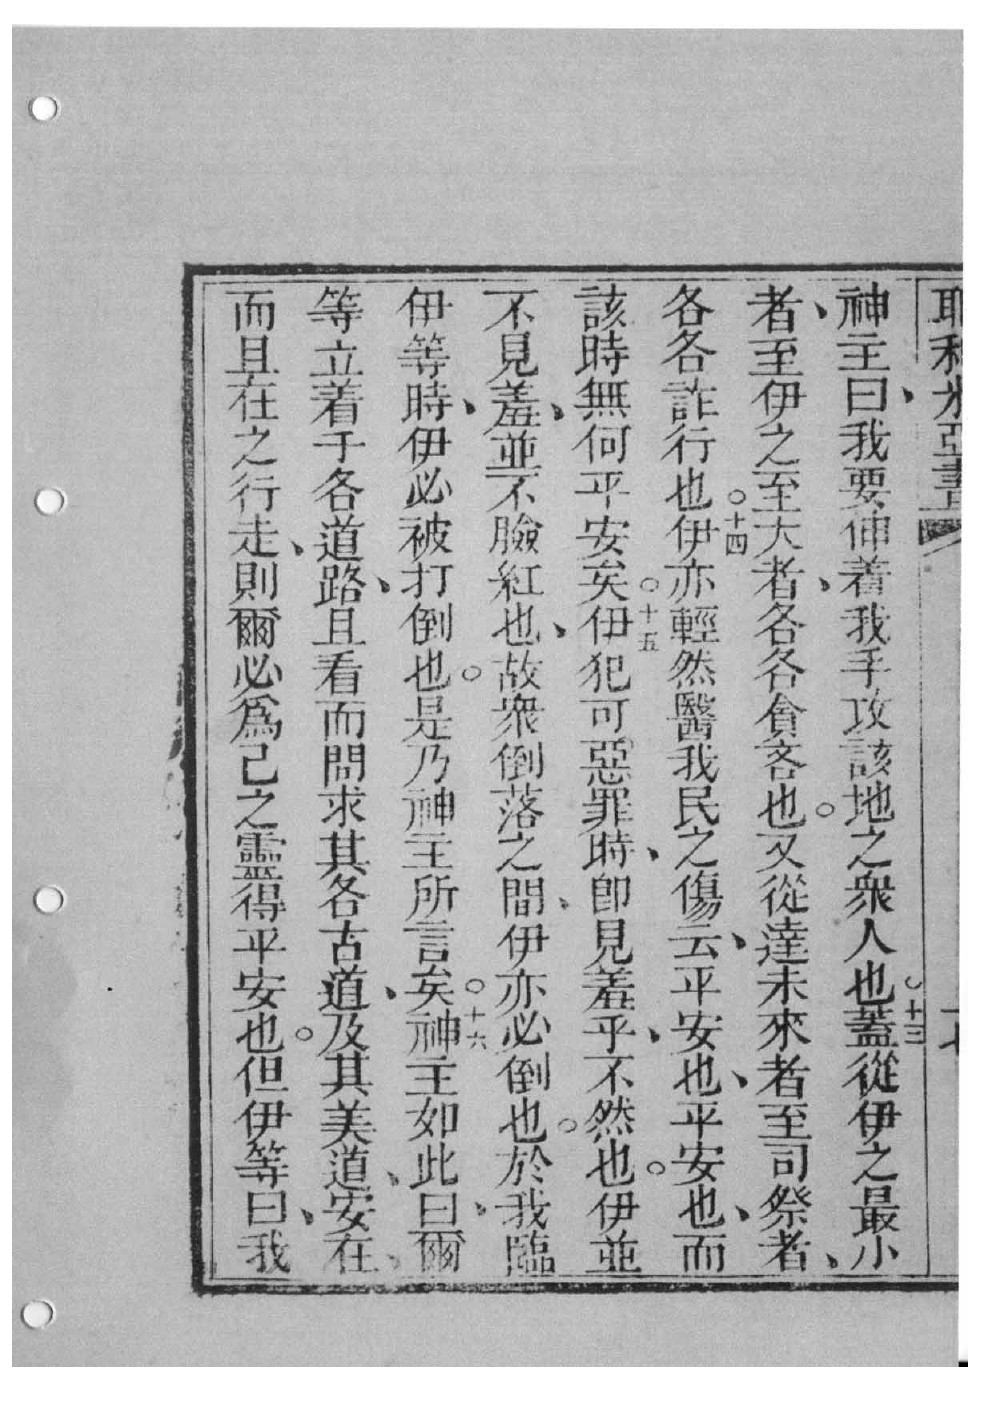 耶利米亞書
神主曰、我要伸着我手攻該地之衆人也。十三蓋從伊之最小
者、至伊之至大者、各各貪吝也。又從達未來者至司祭者、
各各詐行也。十四伊亦輕然醫我民之傷云、平安也、平安也、而
該時無何平安矣。十五伊犯可惡罪時、卽見羞乎、不然也。伊並
不見羞、並不臉紅也、故衆倒落之間、伊亦必倒也。於我臨
伊等時、伊必被打倒也。是乃神主所言矣。十六神主如此曰、爾
等立着于各道路、且看而問求其各古道、及其美道、安在、
而且在之行走、則爾必爲己之靈得平安也。但伊等曰、我